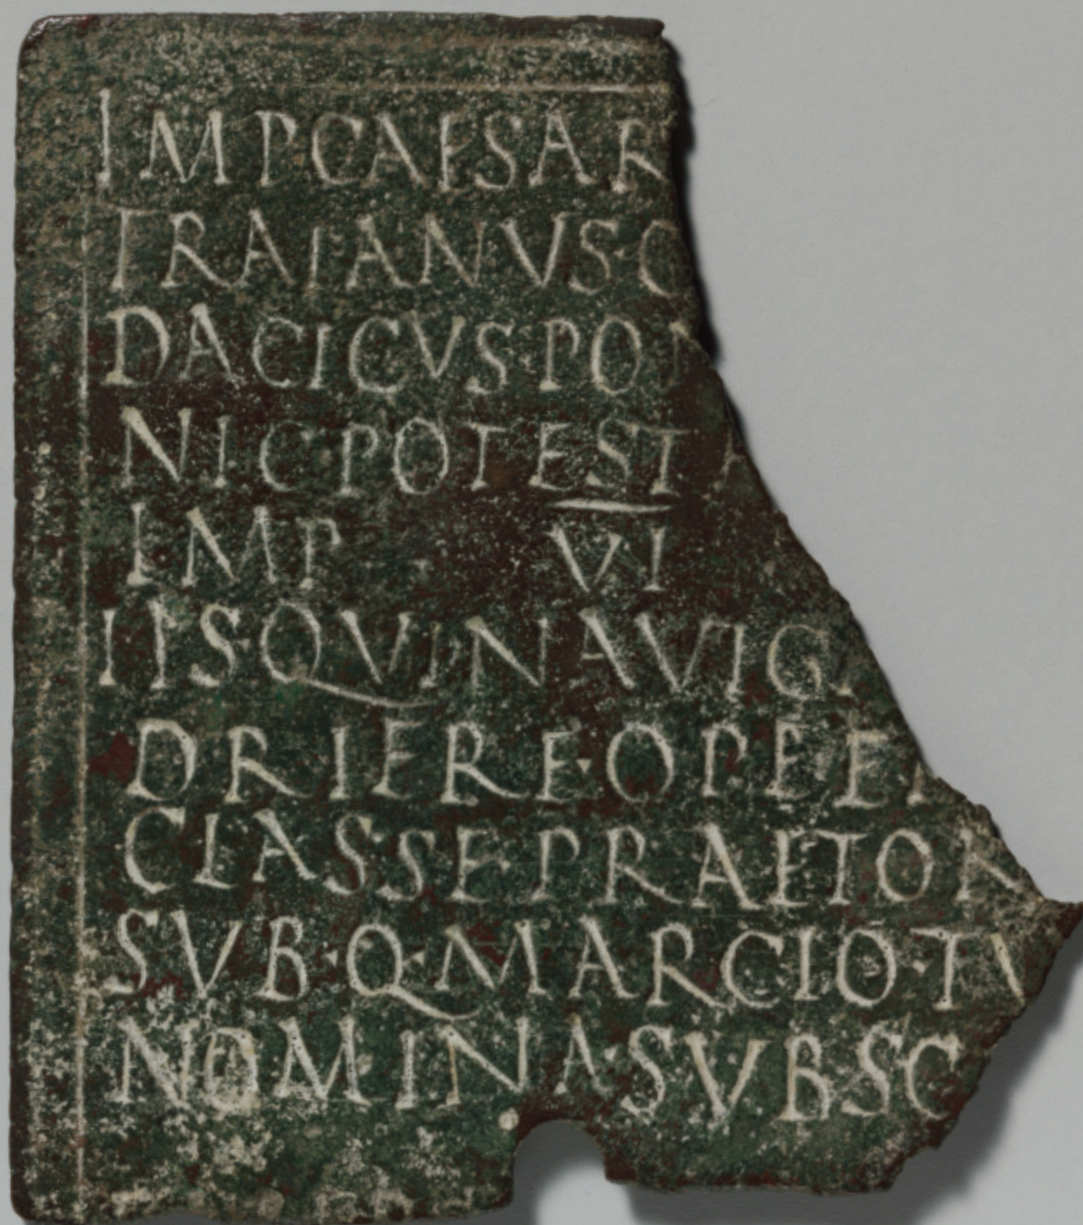 IMP CAESAR
TRAIANVS·O
DACICVS·PON
NIC·POTEST A
IMP VI
IIS·QVI·NAVIGA
DRIERE·OPEEN
CLASSE·PRAETOR
SVB·Q·MARCIO·TV
NOMINA·SVBSC